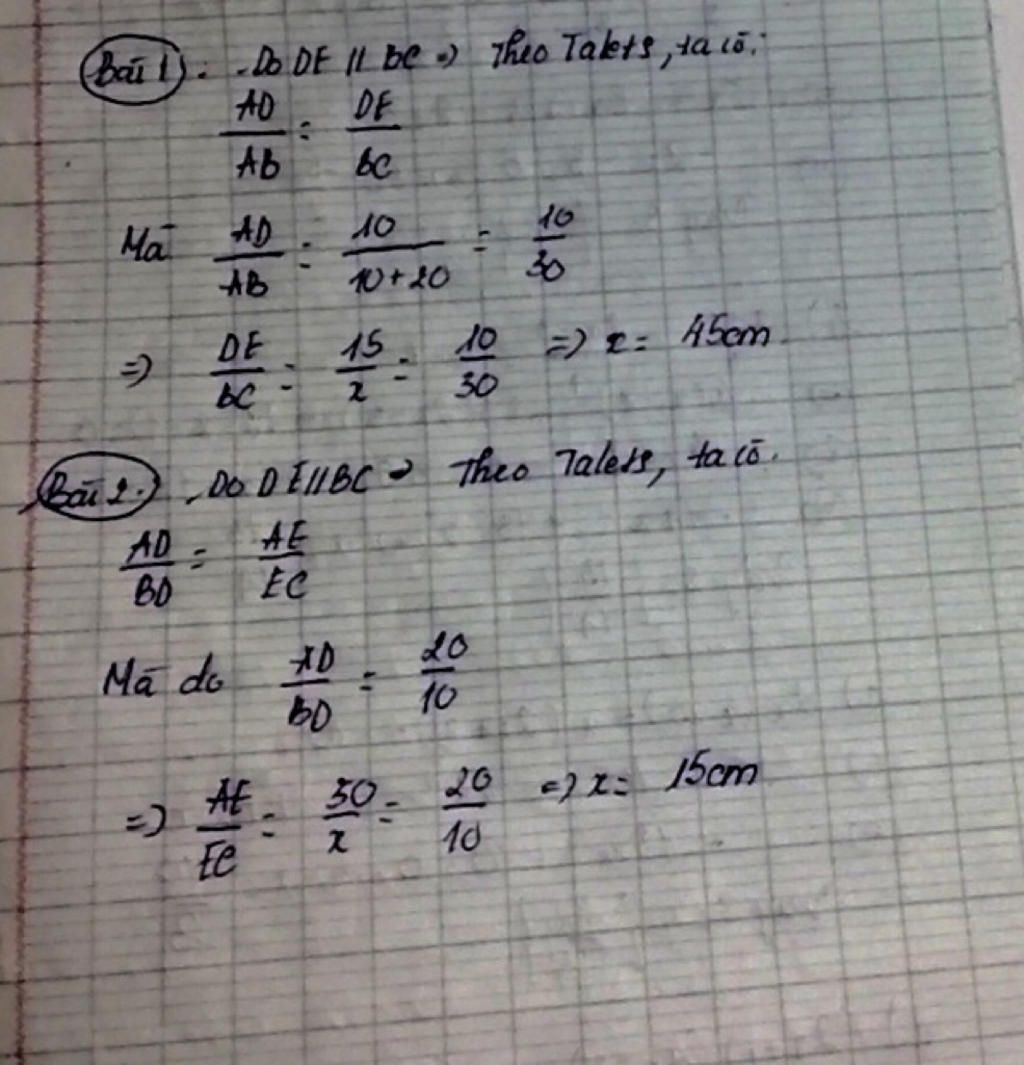 Bài 1). Do DE // BC => Theo Talets, ta có:
AD/AB = DE/BC
Mà AD/AB = 10/10+20 = 10/30
=> DE/BC = 15/x = 10/30 => x = 45cm
Bài 2.) Do DE//BC => Theo Talets, ta có.
AD/BD = AE/EC
Mà do AD/BD = 20/10
=> AE/EC = 30/x = 20/10 => x = 15cm